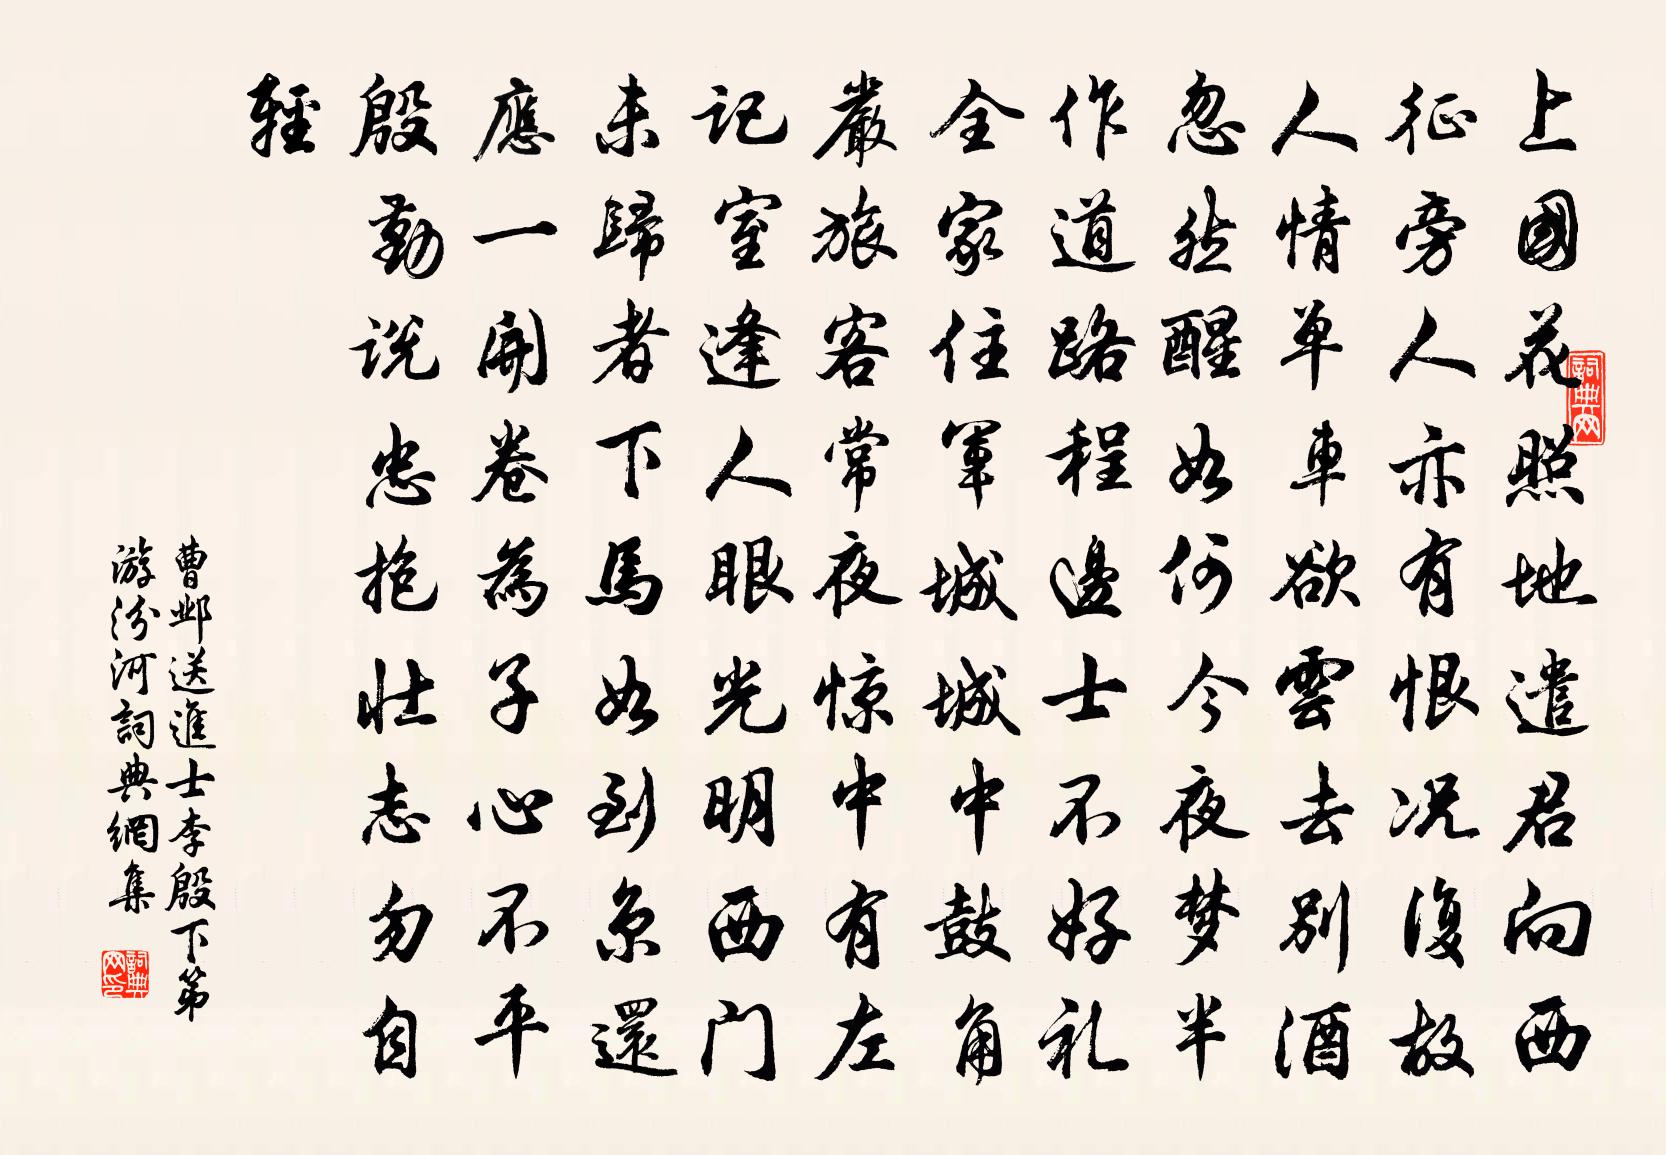 上國花照地遣君向西
征旁人亦有恨況復故
人情単車欲雲去別酒
忽然醒如何今夜梦半
作道路程邊士不好礼
全家住軍城城中鼓角
嚴旅客常夜惊中有左
記室逢人眼光明西门
未歸者下馬如到京還
應一開卷為子心不平
殷勤説忠抱壮志勿自
輕
曹邺送進士李殷下第
游汾河詞典網集
詞典网
詞典网印